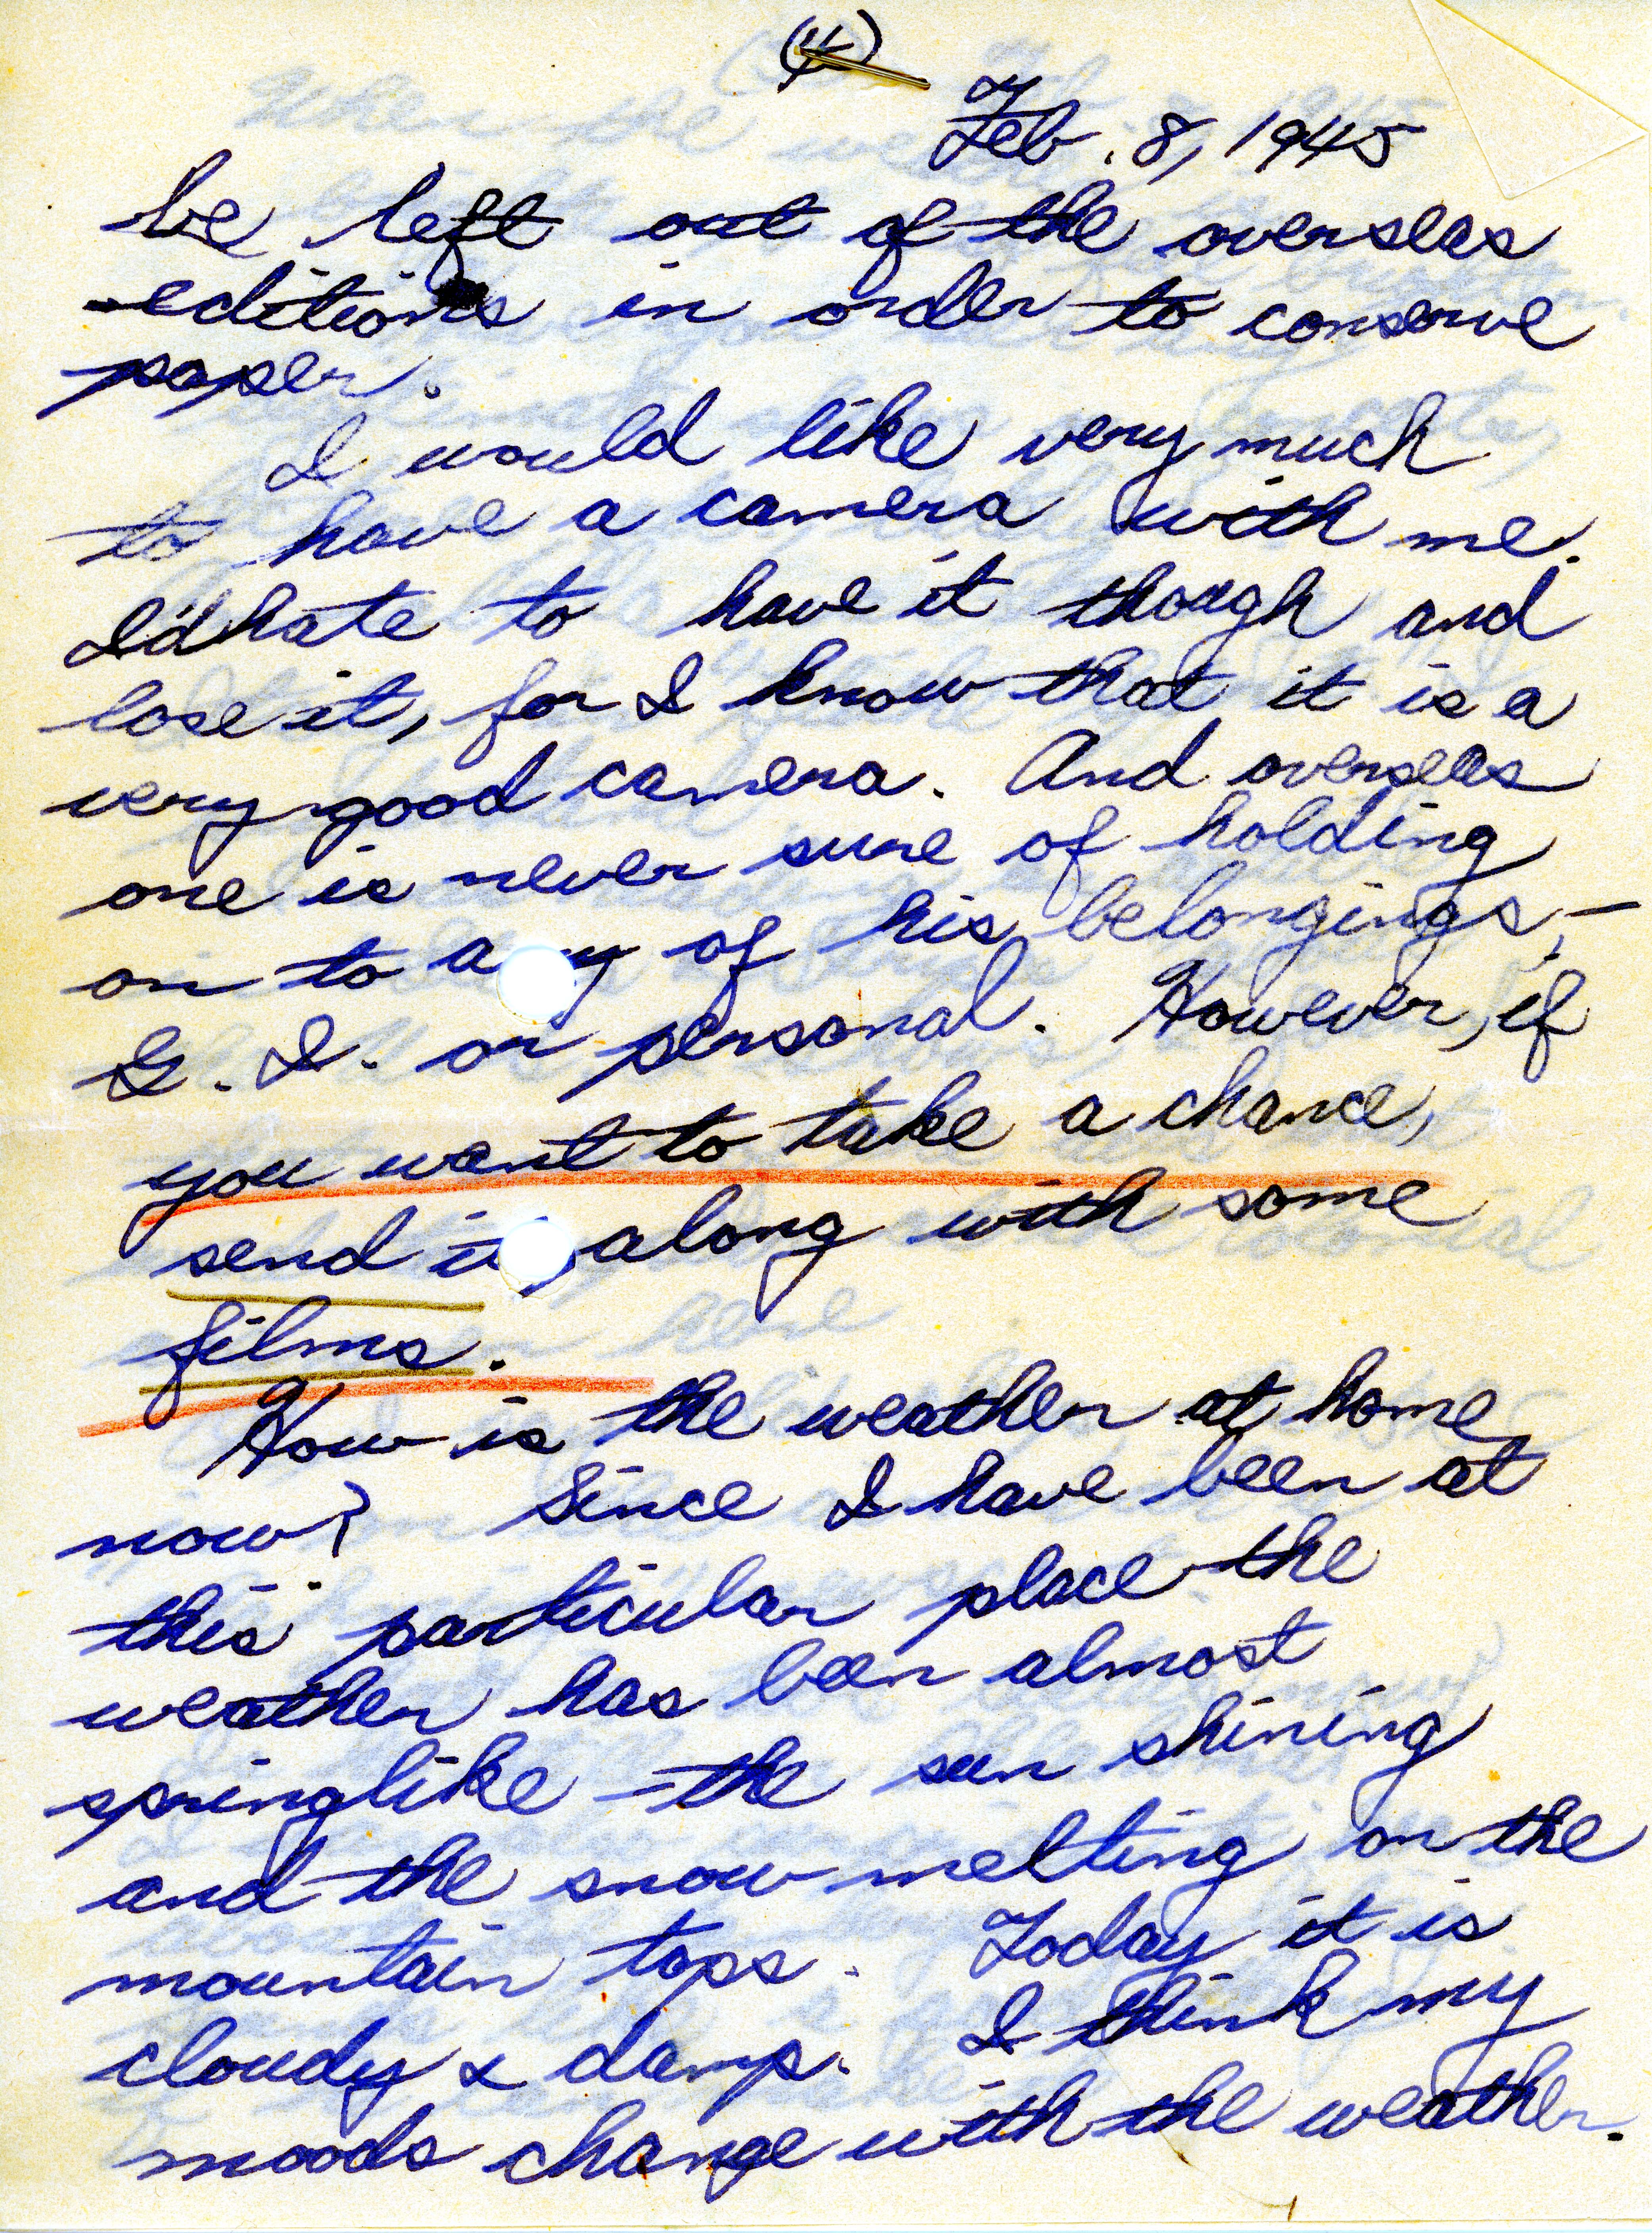 (4)
Feb. 8, 1945
be left out of the overseas
editions in order to conserve
paper.
I would like very much
to have a camera with me.
I'd hate to have it though and
lose it, for I know that it is a
very good camera. And overseas
one is never sure of holding
on to a y of his belongings, —
G. I. or personal. However, if
you want to take a chance,
send it along with some
films.
How is the weather at home
now? Since I have been at
this particular place the
weather has been almost
springlike - the sun shining
and the snow melting on the
mountain tops. Today it is
cloudy & damp. I think my
moods change with the weather.